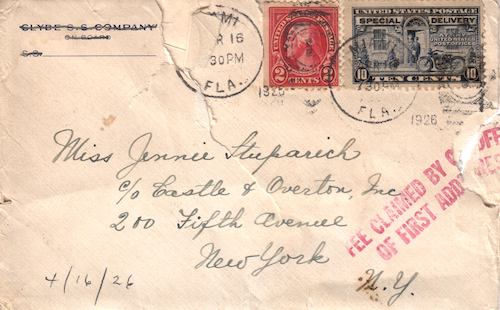 CLYDE S. S. COMPANY
ON BOARD
S.S.
MI
R 16
30PM
FLA.
1926
UNITED STATES POSTAGE
2 CENTS 2
UNITED STATES POSTAGE
SPECIAL DELIVERY
AT ANY UNITED STATES POST OFFICE
10 TEN CENTS 10
30PM
FLA.
1926
Miss Jennie Stuparich
c/o Eastle & Overton, Inc
200 Fifth Avenue
New York
N.Y.
4/16/26
FEE CLAIMED BY OFF
OF FIRST ADD